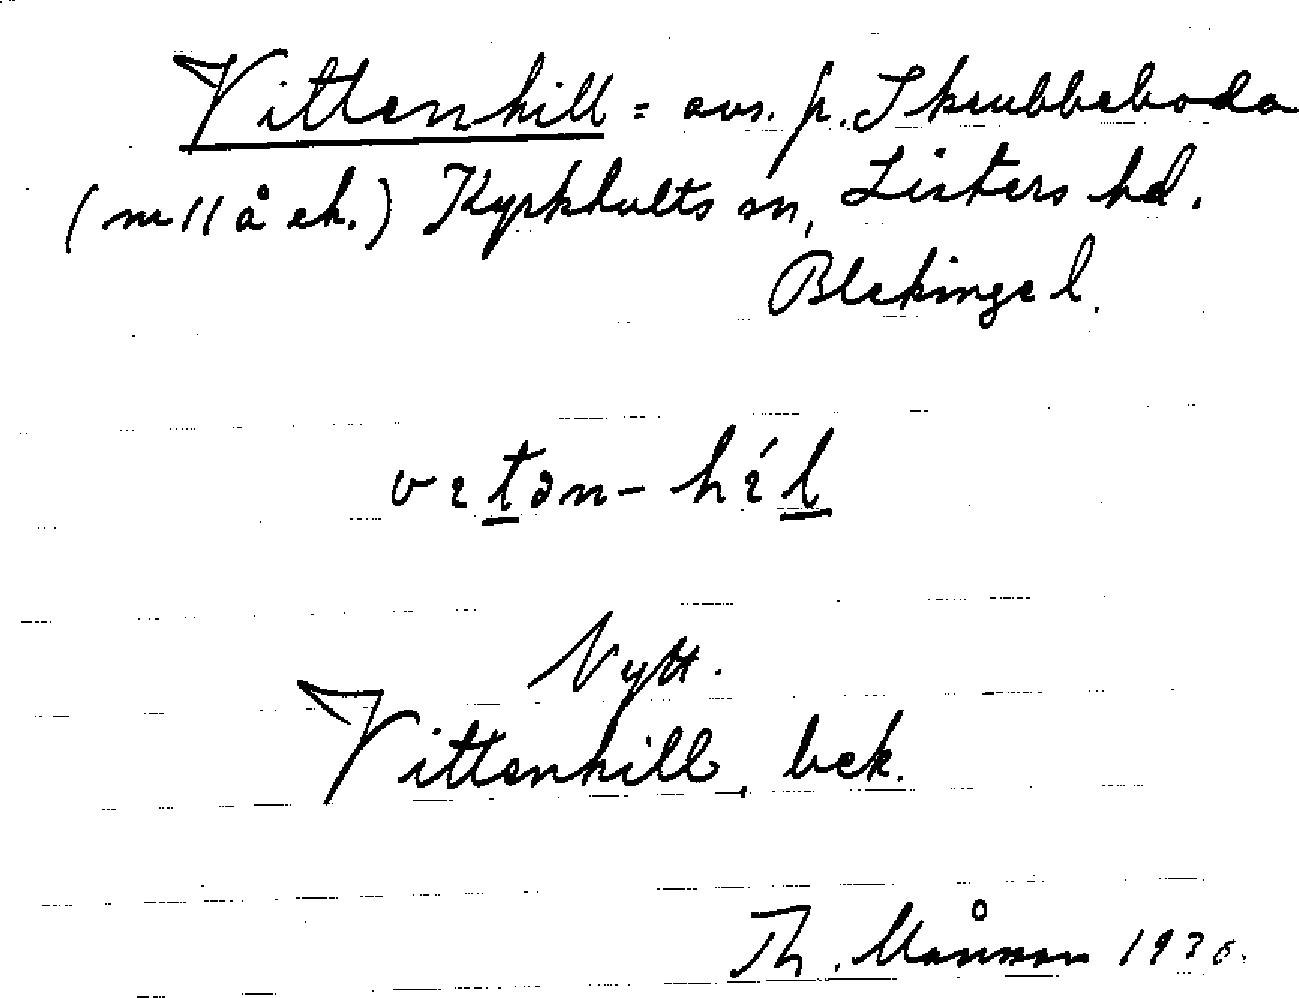 Vittenhill = avs. fr. Skrubbeboda
(m/l å ek.) Kyrkhults sn, Listers hd.
Blekinge l.
vɩtən-hɩ́l
Nytt.
Vittenhill, bek.
Th. Månsson 1930.